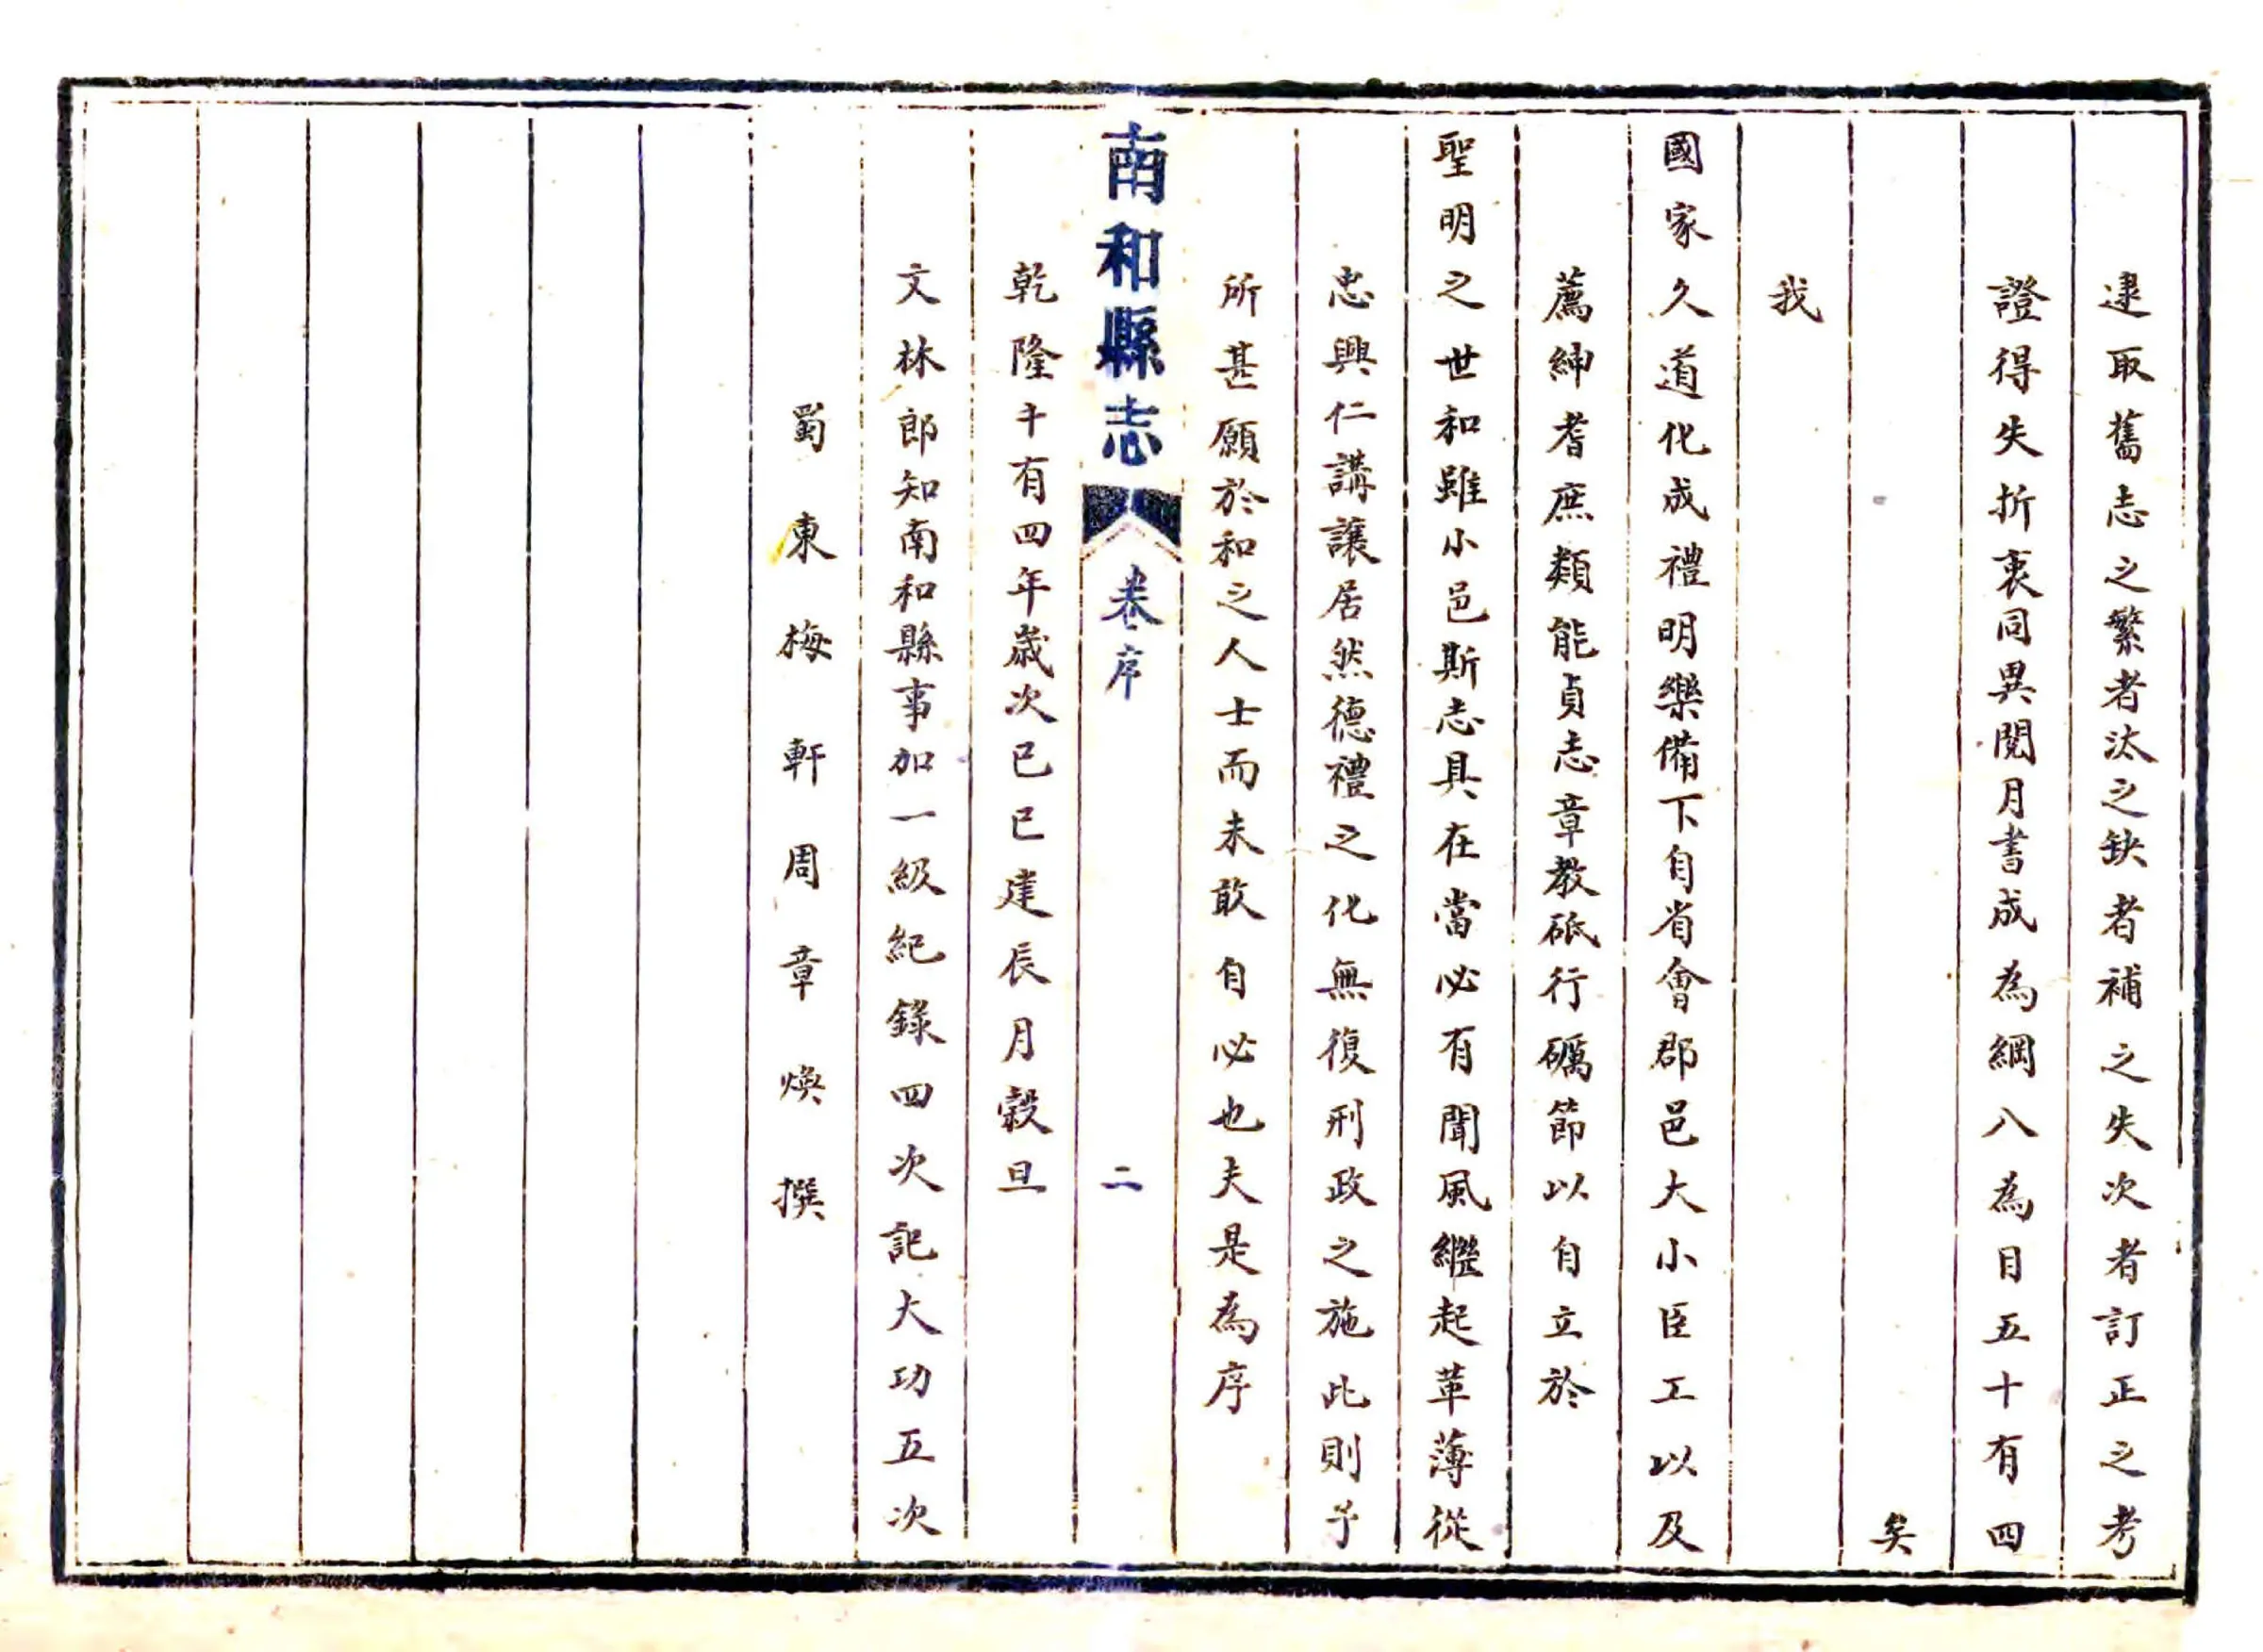 逮取舊志之繁者汰之缺者補之失次者訂正之考
證得失折衷同異閱月書成為綱八為目五十有四
矣
我
國家久道化成禮明樂備下自省會郡邑大小臣工以及
薦紳耆庶類能貞志章教砥行礪節以自立於
聖明之世和雖小邑斯志具在當必有聞風繼起革薄從
忠興仁講讓居然德禮之化無復刑政之施此則予
所甚願於和之人士而未敢自必也夫是為序
南和縣志 卷序 二
乾隆十有四年歲次己巳建辰月穀旦
文林郎知南和縣事加一級紀錄四次記大功五次
蜀東梅軒周章煥撰